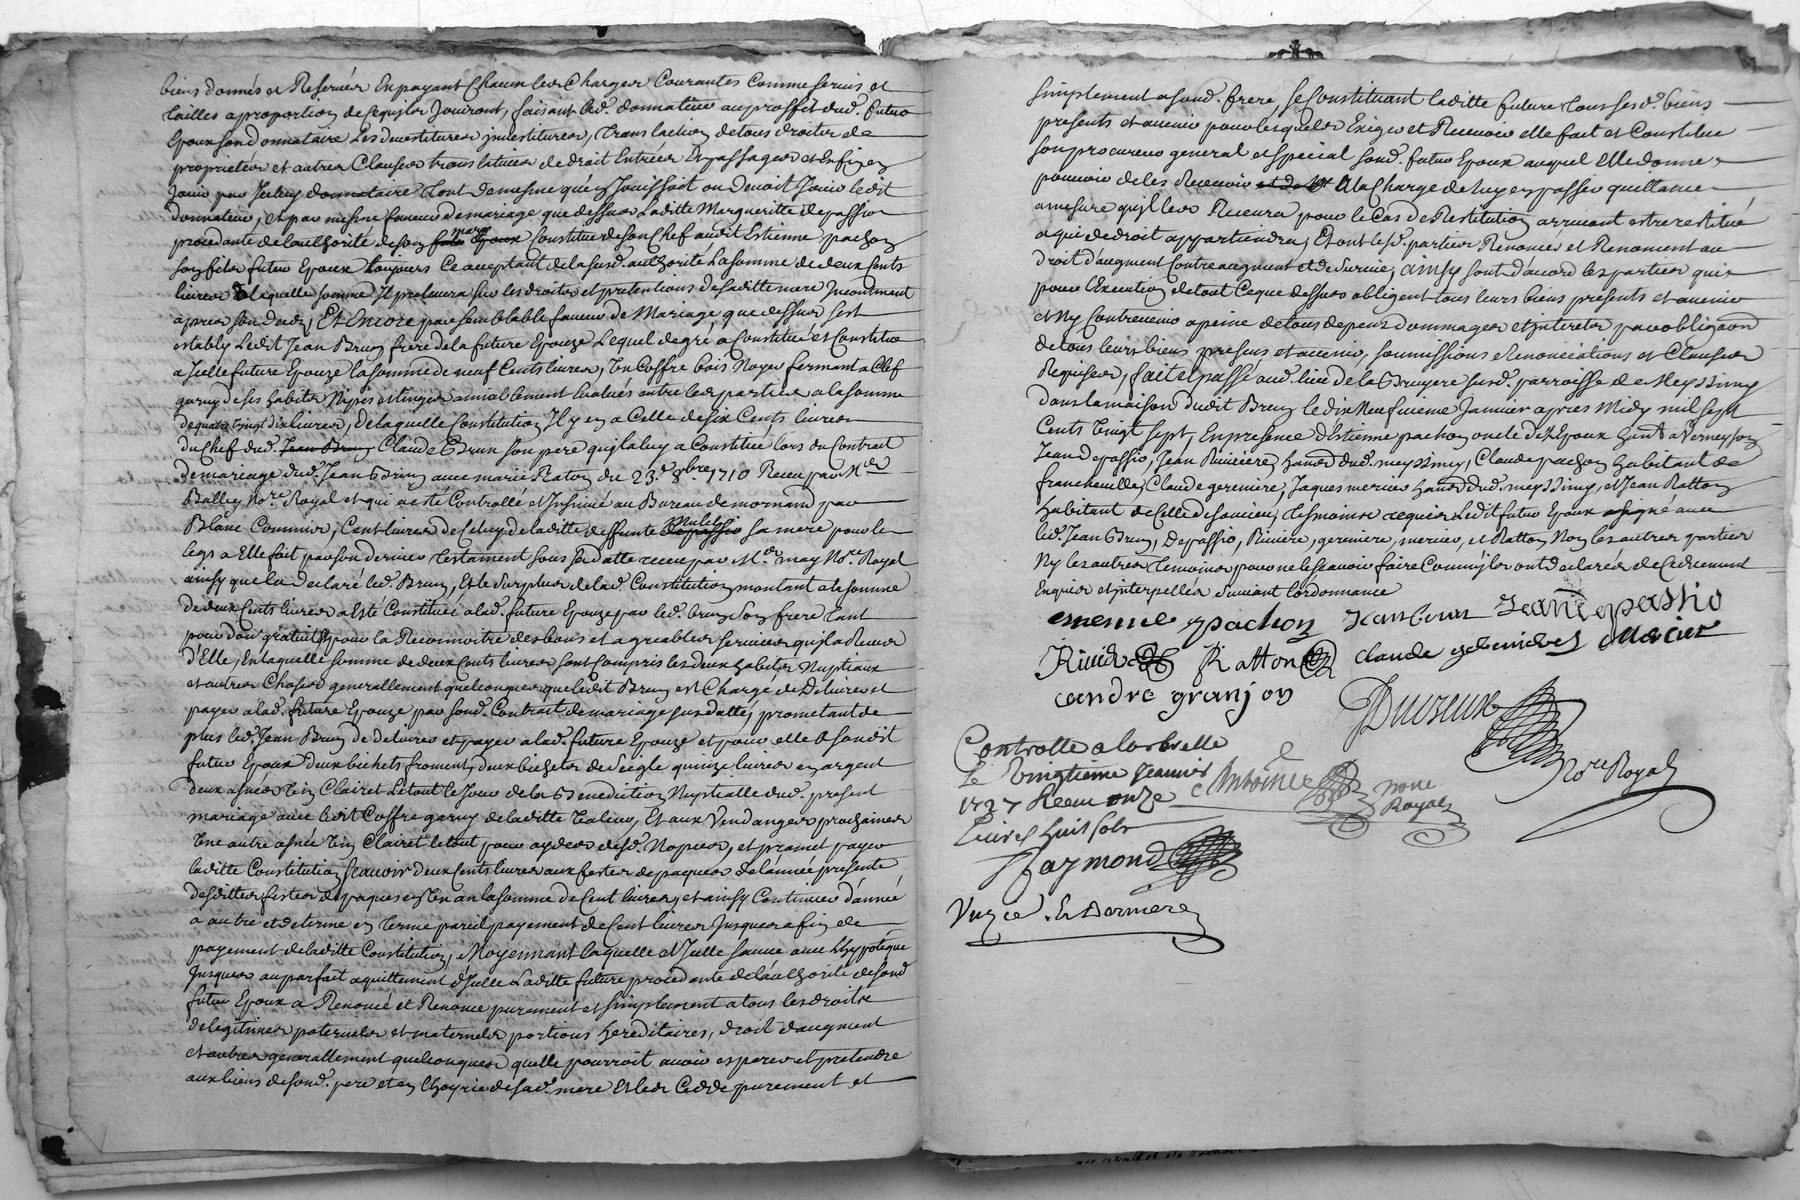 biens donnés et Reservés En payant Chacun les Charges Courantes comme servis et
tailles a proportion de Cequils Jouiront, faisant led. donnateur au proffit dud. futur
Epoux son donnataire Les devestitures investitures, translation de tous droits de
proprietés et autres Clauses translatives de droit Entrées Et passages et Enfin
Jouir par Icelluy donnataire tout de mesme qu'en Jouissoit ou devoit Jouir ledit
donnateur, et par mesme faveur de mariage que dessus Laditte Margueritte depassio
procedante de lauthorité de son mary Constitue de son Chef audit Estienne pachon
son fils futur Epoux toujours Ce acceptant de la susd. authorité La somme de deux Cents
livres laquelle somme Il prelevera sur les droits et pretentions de saditte mere Incontinent
apres son deces, Et Encore par semblable faveur de Mariage que dessus sest
estably Ledit Jean Brun frere de la future Epouze Lequel de gré a Constitué et Constitue
a Icelle future Epouze la somme de neuf Cents livres, Un Coffre bois Noyer fermant a Clef
garny de ses habits Nipes et linges amiablement Evalués entre les parties a la somme
de quatre vingt dix livres, de laquelle Constitution Il y en a Celle de six Cents livres
du Chef dud. Jean Brun Claude Brun son pere quil a luy a Constitué lors du Contract
de mariage dud. Jean Brun avec marie Ratton du 23e. 8bre. 1710 Receu par Me
Bally Nore. Royal et qui a esté Controllé et Insinué au Bureau de mornant par
Blanc Commis, Cent livres de Celuy de laditte deffunte sa mere pour le
legs a Elle fait par son dernier testament sous sa datte receu par Me. may Nore. Royal
ainsy que la declaré led. Brun, Et le surplus de lad. Constitution montant a la somme
de deux Cents livres a Esté Constitué a lad. future Epouze par led. brun son frere tant
pour don gratuit que pour la Reconnoitre des bons et agreables services quil a Receu
d'Elle, En laquelle somme de deux Cents livres sont Compris les deux habits Nuptiaux
et autres Choses generallement quelconques que ledit Brun est Chargé de Delivrer et
payer a lad. future Epouze par sond. Contract de mariage sus datté, promettant de
plus led. Jean Brun de delivrer et payer a lad. future Epouze et pour elle a sondit
futur Epoux deux bichets froment, deux bichets de seigle quinze livres en argent
deux asnées vin Clairet Le tout le Jour de la Benediction Nuptialle dud. present
mariage avec ledit Coffre garny de laditte valeur, Et aux Vendanges prochaines
Une autre asnée vin Clairet le tout pour ayder esd. Nopces, et promet payer
laditte Constitution scavoir deux Cents livres aux festes de paques de l'année presente
desdittes festes de paques en Un an la somme de Cent livres, et ainsy Continuer d'année
a autre et de terme en terme pareil payement de Cent livres Jusques a fin de
payement de laditte Constitution, Moyennant laquelle et Icelle sauve avec Lhypoteque
Jusques au parfait aquittement d'Icelle Laditte future procedante de lauthorité de sond
futur Epoux a Renoncé et Renonce purement et simplement a tous les droits
de legitimes paternels et maternels portions hereditaires, droit daugment
et autres generallement quelconques quelle pourroit avoir esperer et pretendre
aux biens de sond. pere et en lhoyrie de sad. mere Et les Cedde purement et
simplement a sond. frere, se Constituant laditte future tous sesd. biens
presents et avenir pour lesquels Exiger et Recevoir elle fait et Constitue
son procureur general et special sond. futur Epoux auquel Elle donne
pouvoir de les Recevoir A la Charge de luy en passer quittance
a mesure quil les Recevra pour le Cas de Restitution arrivant estre restitué
a qui de droit appartiendra, Et ont lesd. parties Renoncés et Renoncent au
droit d'augment Contre augment et de survie, ainsy sont d'acord les parties qui
pour l'Execution de tout Ceque dessus obligent tous leurs biens presents et avenir
et Ny Contrevenir a peine de tous depens dommages et interets par obligaon
de tous leurs biens presens et avenir, soumissions Renonciations et Clauses
Requises, fait et passé aud. lieu de la Bruyere susd. parroisse de Meyssimy
dans la maison dudit Brun le dix Neufvieme Janvier apres Midy mil sept
Cents Vingt sept, En presence d'Estienne pachon oncle de l'Epoux hant. a Verneyson
Jean depassio, Jean Riviere hants. dud. meyssimy, Claude pachon habitant de
francheville, Claude gereniere, Jaques mercier hants dud. meyssimy, et Jean Ratton
habitant de Celle de soucieu, tesmoins requis Ledit futur Epoux a signé avec
led. Jean Brun, Depassio, Riviere, gereniere, mercier, et Ratton Non les autres parties
Ny les autres temoins pour ne le scavoir faire Comm'ils ont declarés de Ce deuement
Enquis et interpellés suivant l'ordonnance
estienne pachon Jean brun Jean depassio
Riviere Ratton claude gereniere Mercier
andre granjon
Duvreux
Nore Royal
Controllé a larbrelle
Le Vingtieme Janvier
1727 Receu onze
Livres huit sols
Antoine
nore
Royal
Raymond